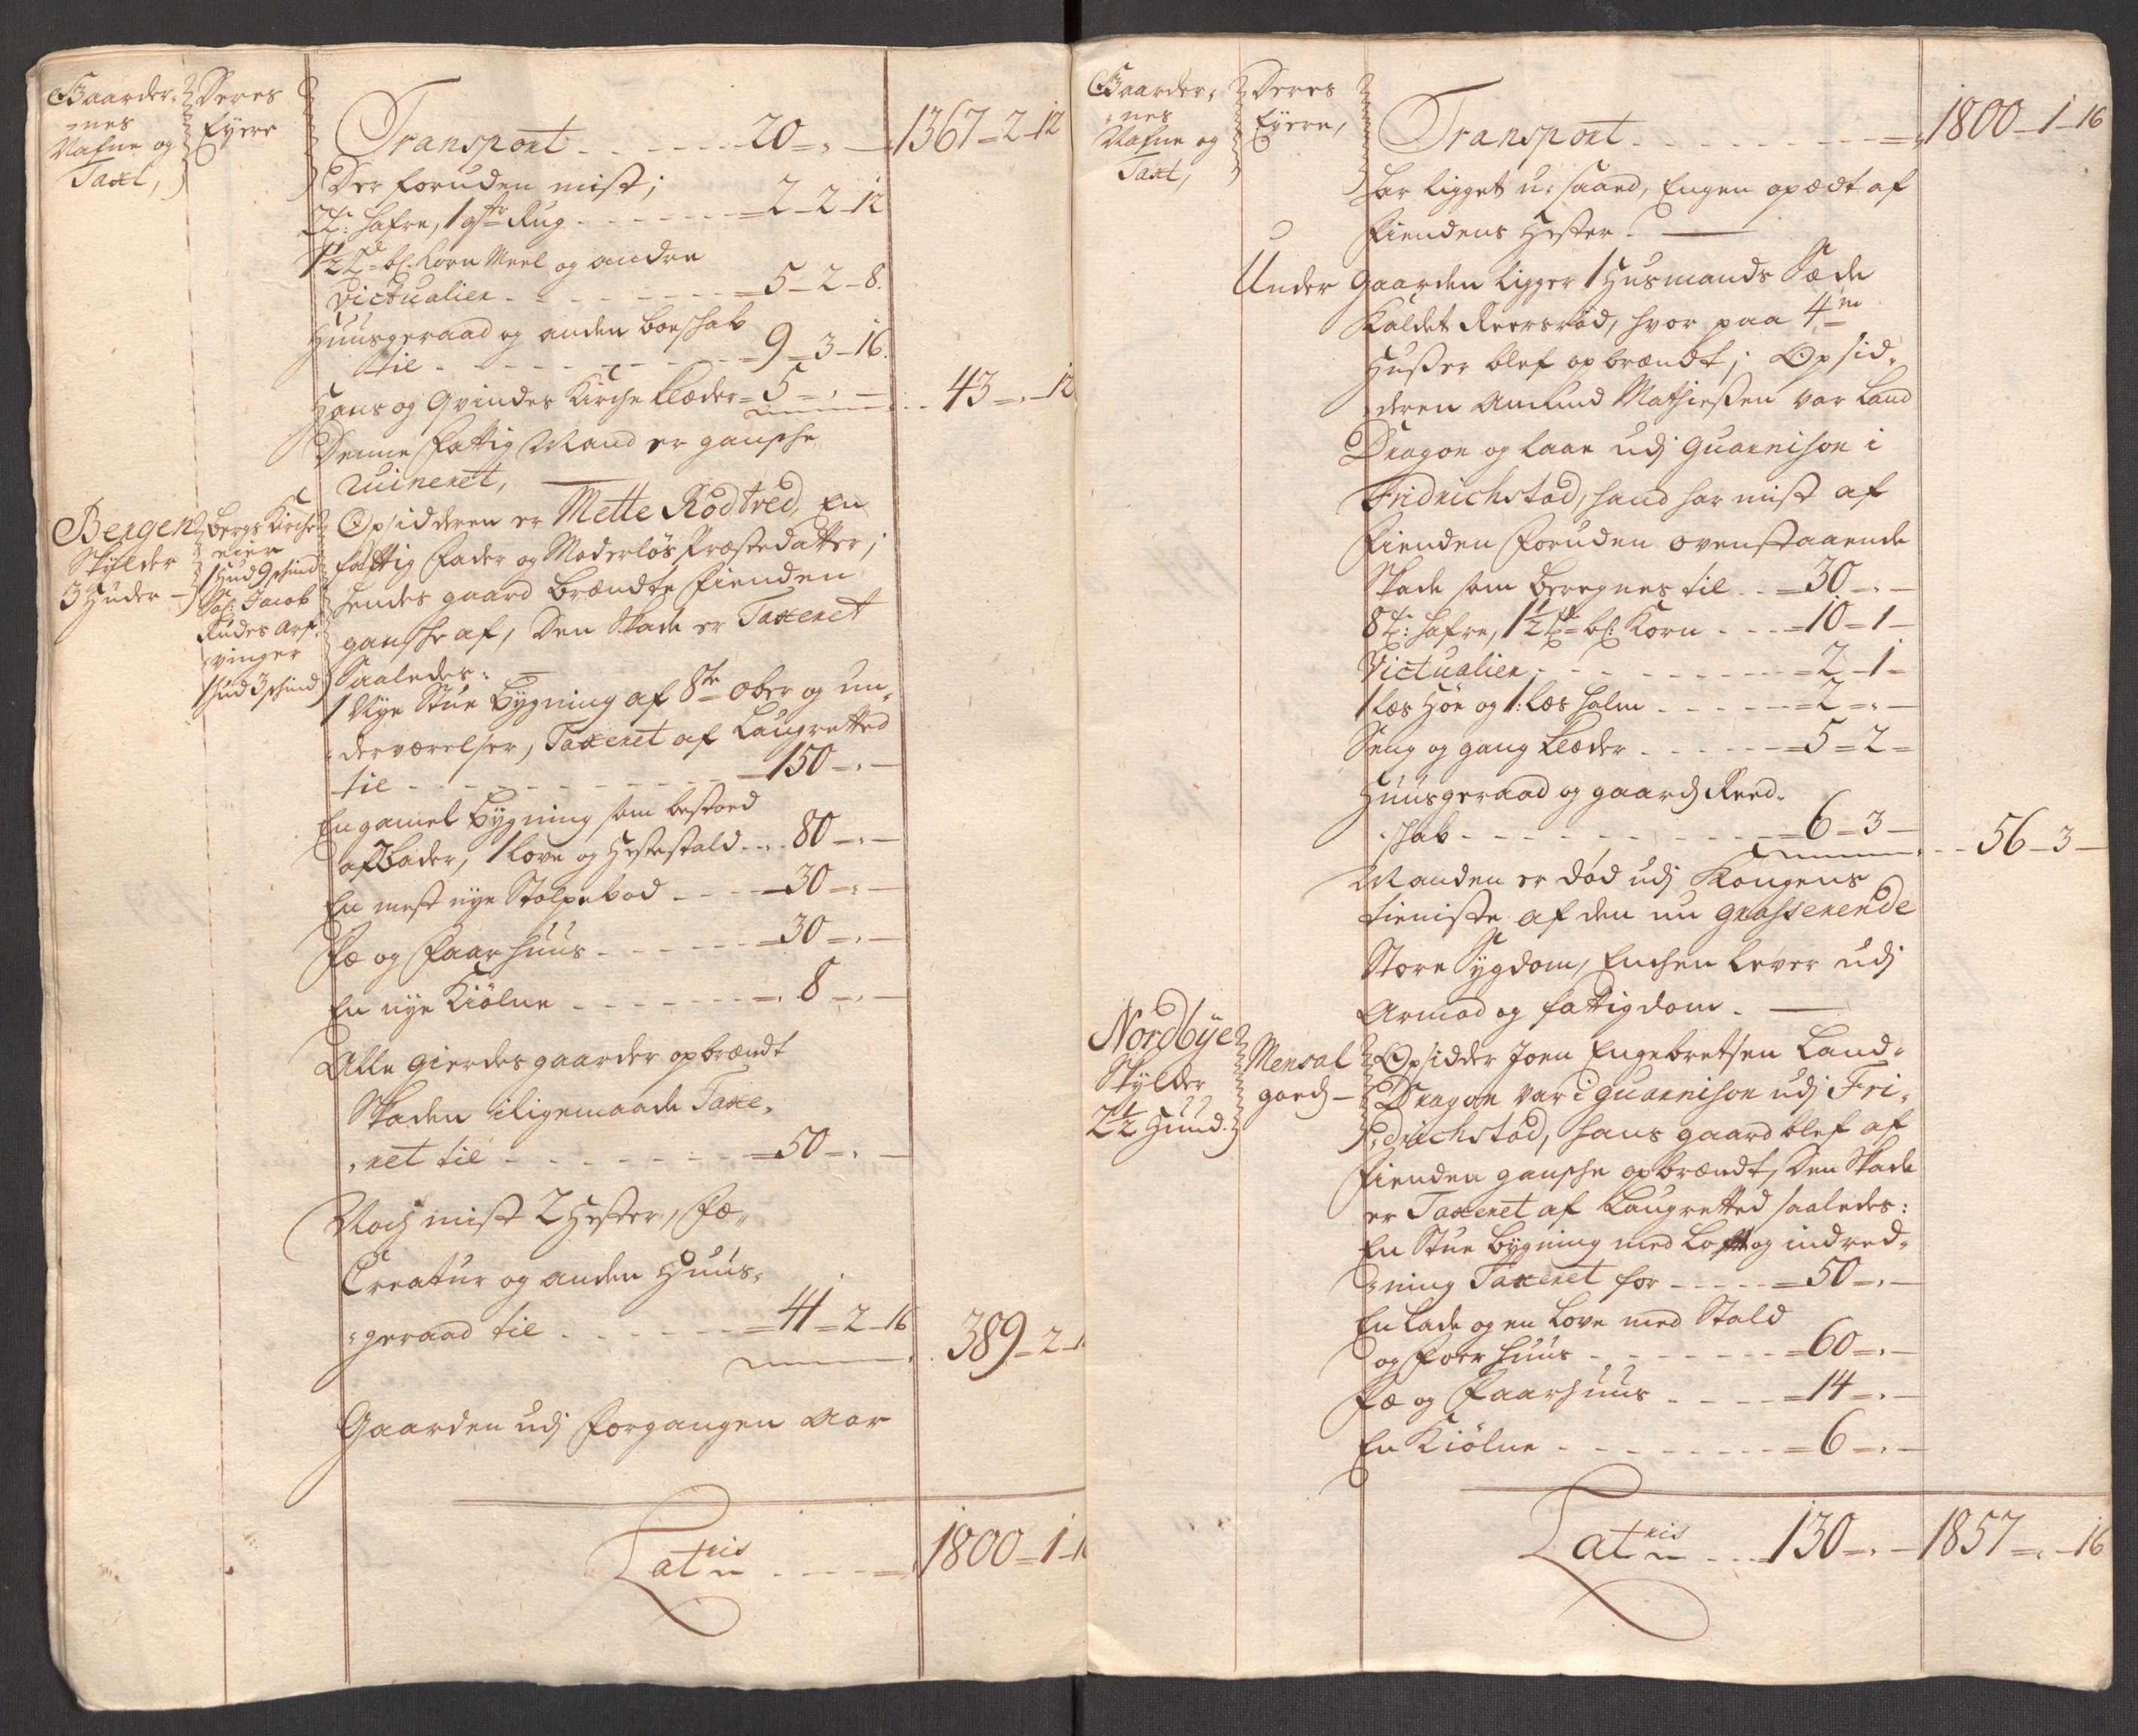 Gaarder-
nes
Nafne og
Taxt,
Deres
Eyere
Transport - - - - - 20 = , — 1367 = 2 - 12
Der foruden mist;
2 t: Hafre, 1 qtr Rug - - - - - = 2 - 2 - 12
1½ td bl. Korn Meel og andre
Victualier - - - - - = 5 - 2 - 8.
Huusgeraad og anden boeschab
til - - - - - = 9 = 3 - 16.
Hans og Qvindes Kirche Klæder = 5 = , — . . 43 = , - 12
Denne fattig Mand er gansche
ruineret,
Bergen
Skylder
3 Huder -
Bergs Kirche
eier
1 Hud 9 schind
Sal: Jacob
Rudes Arf-
vinger
1 hud 3 schind
Opsidderen er Mette Rødtved, En
fattig Fader og Moderløs Præstedatter;
hendes gaard brændte Fienden
gansche af, Den Skade er Taxeret
Saaledes: —
1 Nye Stue bygning af 8te ober og un-
derværelser, Taxeret af Laugretted
til - - - - - = 150 = , —
En gamel bygning som bestoed
af 2 Lader, 1 Love og Hestestald - - 80 = , —
En mest nye Stolpebod - - - = 30 = , —
Fæ og Faarhuus - - - - = 30 = , —
En nye Kiølne - - - - - = . 8 = , —
Alle gierdesgaarder opbrændt
Skaden iligemaade Taxe-
ret til - - - - - = 50 = , —
Noch mist 2 Hester, Fæ-
Creatur og anden Huus-
geraad til - - - - = 41 = 2 - 16 . 389 = 2 - 1
Gaarden udj forgangen Aar
Latris - - - - = 1800 = 1 - 1
Gaarder-
nes
Nafne og
Taxt,
Deres
Eyere,
Transport - - - - - = 1800 - 1 - 16
har ligget u-saaed, Engen opædt af
Fiendens Hester. —
Under Gaarden ligger 1 Husmands Sæde
Kaldet Reersrød, hvor paa 4re
Husser blef opbrændt; Opsid-
deren Amund Mathiesen var Land
Dragon og laae udj Guarnison i
Fridrichstad, hand har mist af
Fienden foruden ovenstaaende
Skade som beregnes til - - = 30 = , —
8 t: Hafre, 1½ td bl: Korn - - - = 10 = 1 -
Victualier - - - - - = 2 - 1 -
1 læs Høe og 1: læs halm - - - = 2 = , —
Seng og gang Klæder - - - - = 5 = 2 =
Huusgeraad og gaards Reed-
schab - - - - - = 6 = 3 — . . 56 - 3 —
Manden er død udj Kongens
tieniste af den nu grasserende
Store Sygdom, Enchen lever udj
Armod og fattigdom. —
Nordbye
Skylder
2½ Huud.
Mensal
gods -
Opsidder Joen Engebretsen Land-
Dragon var i guarnison udj Fri-
drichstad, hans gaard blef af
Fienden gansche opbrændt, Den Skade
er Taxeret af Laugretted saaledes:
En Stue bygning med Loft og indred-
ning Taxeret for - - - - = 50 = , —
En Lade og en Love med Stald
og Foer huus - - - - - = 60 = , —
Fæ og Faarhuus - - - - = 14 = , —
En Kiølne - - - - - = 6 = , —
Latris - - . 130 = , — 1857 = , - 16